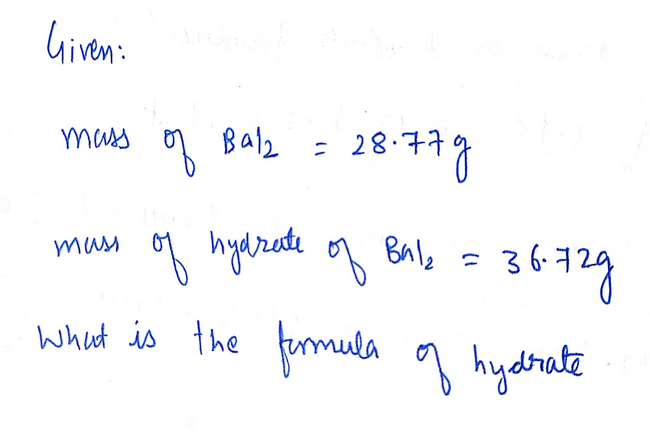 Given:
mass of BaI2 = 28.77g
mass of hydrate of BaI2 = 36.72g
What is the formula of hydrate